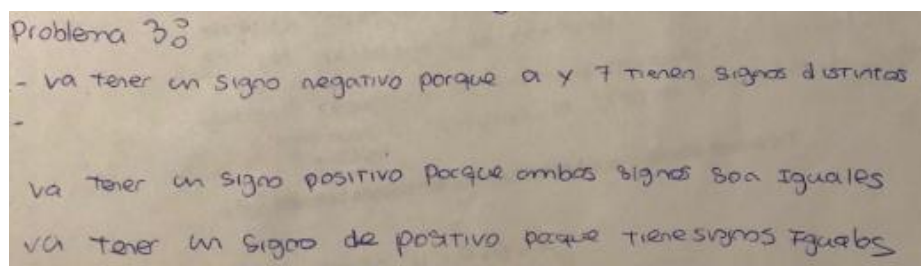 Problema 3:
- va tener un signo negativo porque a y 7 tienen signos distintos
-
va tener un signo positivo porque ambos signos son Iguales
va tener un signo de positivo porque tiene signos Iguales